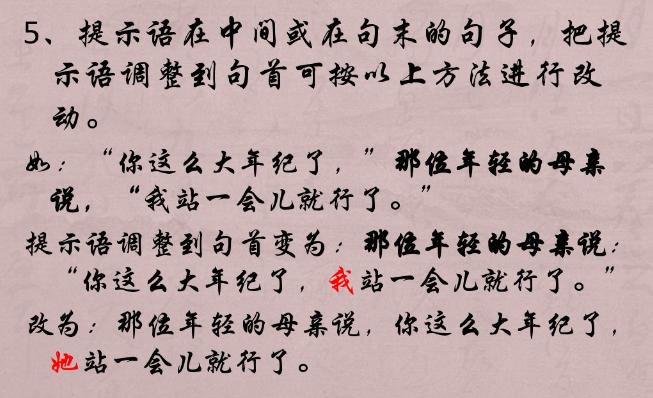 5、提示语在中间或在句末的句子，把提
示语调整到句首可按以上方法进行改
动。
如：“你这么大年纪了，”那位年轻的母亲
说，“我站一会儿就行了。”
提示语调整到句首变为：那位年轻的母亲说：
“你这么大年纪了，我站一会儿就行了。”
改为：那位年轻的母亲说，你这么大年纪了，
她站一会儿就行了。